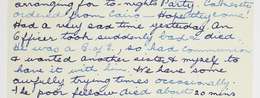 arranging for to-night's Party. Cathcarts
ordered from Cairo - Hope they come.
Had a very sad time yesterday. An
Officer took suddenly bad & died
He was a C. of E., so had communion
& wanted another sister & myself to
have it with him. We have some
awfully trying times occasionally.
The poor fellow died about 20 mins